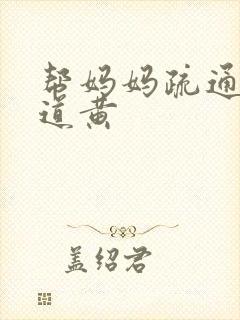 帮妈妈疏通
道黄
盖绍君